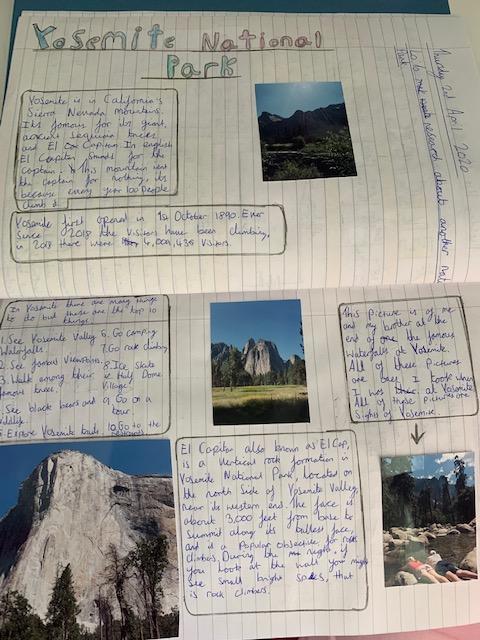 Yosemite National
Park
Thursday 2nd April, 2020
research about another nat
Park.
Yosemite is in California's
Sierra Nevada mountains.
Its famous for its giant,
ancient sequoia trees,
and El Capitan. In english
El Capitan stands for the
captain. This mountain isnt
the captain for nothing, its
because every year 100 people
climb it.
Yosemite first opened in 1st October 1890. Ever
Since 2018 the visitors have been climbing,
in 2018 there were 4,009,436 visitors.
In Yosemite there are many things
to do but these are the top 10
things
1. See Yosemite Valley
Waterfalls.
2. See famous viewpoints
3. Walk among their
famous trees.
See black bears and
wildlife.
5. Explore Yosemite trails
6. Go camping
7. Go rock climbing
8. Ice skate
at Half Dome
Village.
9. Go on a
tour
10. Go to the
This picture is of me
and my brother at the
end of one the famous
waterfalls at Yosemite.
All of these pictures
are ones I took when
I was at Yosemite
All of these pictures are
Sights of Yosemite.
El Capitan also known as El Cap,
is a vertical rock formation in
Yosemite National Park, located on
the north side of Yosemite Valley,
near its western end. The face is
about 3,000 feet from base to
Summit along its tallest face,
and is a popular objective for rock
climbers. During the night, if
you look at the wall you might
see small bright that
is rock climbers.